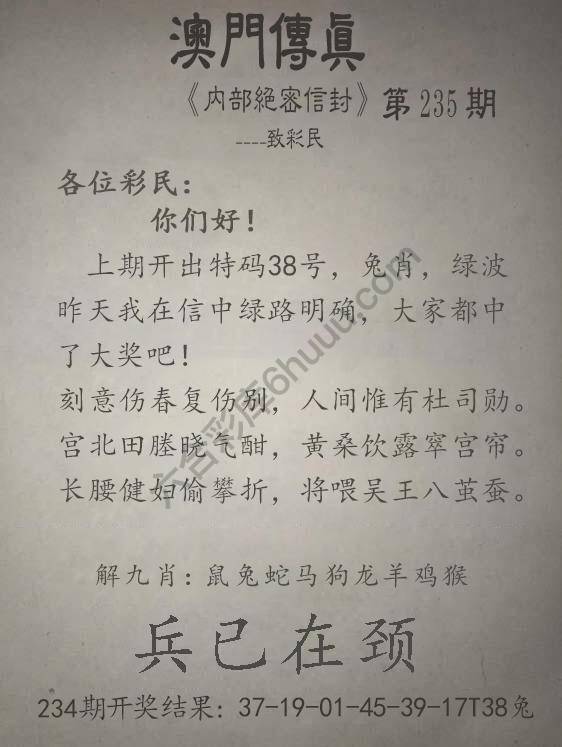 澳門傳眞
《内部絕密信封》第235期
----致彩民
各位彩民：
你们好！
上期开出特码38号，兔肖，绿波
昨天我在信中绿路明确，大家都中
了大奖吧！
刻意伤春复伤别，人间惟有杜司勋。
宫北田塍晓气酣，黄桑饮露窣宫帘。
长腰健妇偷攀折，将喂吴王八茧蚕。
解九肖：鼠兔蛇马狗龙羊鸡猴
兵已在颈
234期开奖结果：37-19-01-45-39-17T38兔
六合彩库6huuu.com